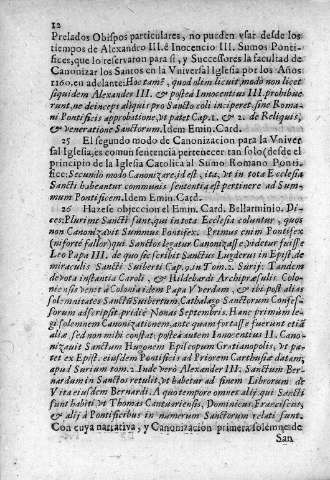 12
Prelados Obispos particulares, no pueden vsar desde los
tiempos de Alexandro III. è Inocencio III. Sumos Ponti-
fices, que lo reservaron para sì, y Successores la facultad de
Canonizar los Santos en la Vniversal Iglesia por los Años
1160. en adelante: Hoc tamẽ, quod olim licuit, modo non licet
siquidem Alexander III. & posteà Innocentius III. prohibue
runt, ne deinceps aliquis pro Sancto coli inciperet, sine Roma
ni Pontificis approbatione, vt patet Cap. 1. & 2. de Reliquis,
& veneratione Sanctorum. Idem Emin. Card.
25 El segundo modo de Canonizacion para la Vniver
sal Iglesia, es comun sentencia pertenecer tan solo (desde el
principio de la Iglesia Catolica al Sumo Romano Ponti-
fice: Secundo modo Canonizare, id est, ita, vt in tota Ecclesia
Sancti habeantur communis sententia est pertinere ad Sum-
mum Pontificem. Idem Emin. Card.
26 Hazese objeccion el Emin. Card. Bellarminio. Di-
ces: Plurimi Sancti sunt, qui in tota Ecclesia coluntur, quos
non Canonizavit Summus Pontifex. Primus enim Pontifex
(ni forte fallor) qui Sanctos legatur Canonizasse, videtur fuisse
Leo Papa III. de quo sic scribit Sanctus Lugderus in Epist. de
miraculis Sancti Suiberti Cap. 9. in Tom. 2. Surij: Tandem
devota instantia Caroli, & Hildebardi Archipræsulis Colo-
niensis venit à Colonia idem Papa Vverdam, & ibi post alias
solemnitates Sanctũ Suibertum, Cathalago Sanctorum Confessorum
adscripsit pridiè Nonas Septembris. Hanc primùm le-
gi solemnem Canonizationem, ante quam fortasse fuerunt etiã
aliæ, sed non mihi constat: posteà autem Innocentius II. Cano-
nizavit Sanctum Hugonem Episcopum Gratianopolis, vt pa-
tet ex Epist. eiusdem Pontificis ad Priorem Carthusiæ datam,
apud Surium tom. 2. Inde verò Alexander III. Sanctum Ber-
nardum in Sanctos retulit, vt habetur ad finem Librorum de
Vita eiusdem Bernardi. A quo tempore omnes alij, qui Sancti
sunt habiti, vt Thomas Cantuariensis, Dominicus, Franciscus,
& alij à Pontificibus in numerum Sanctorum relati sunt.
Con cuya narrativa, y Canonizacion primera solemne de
San